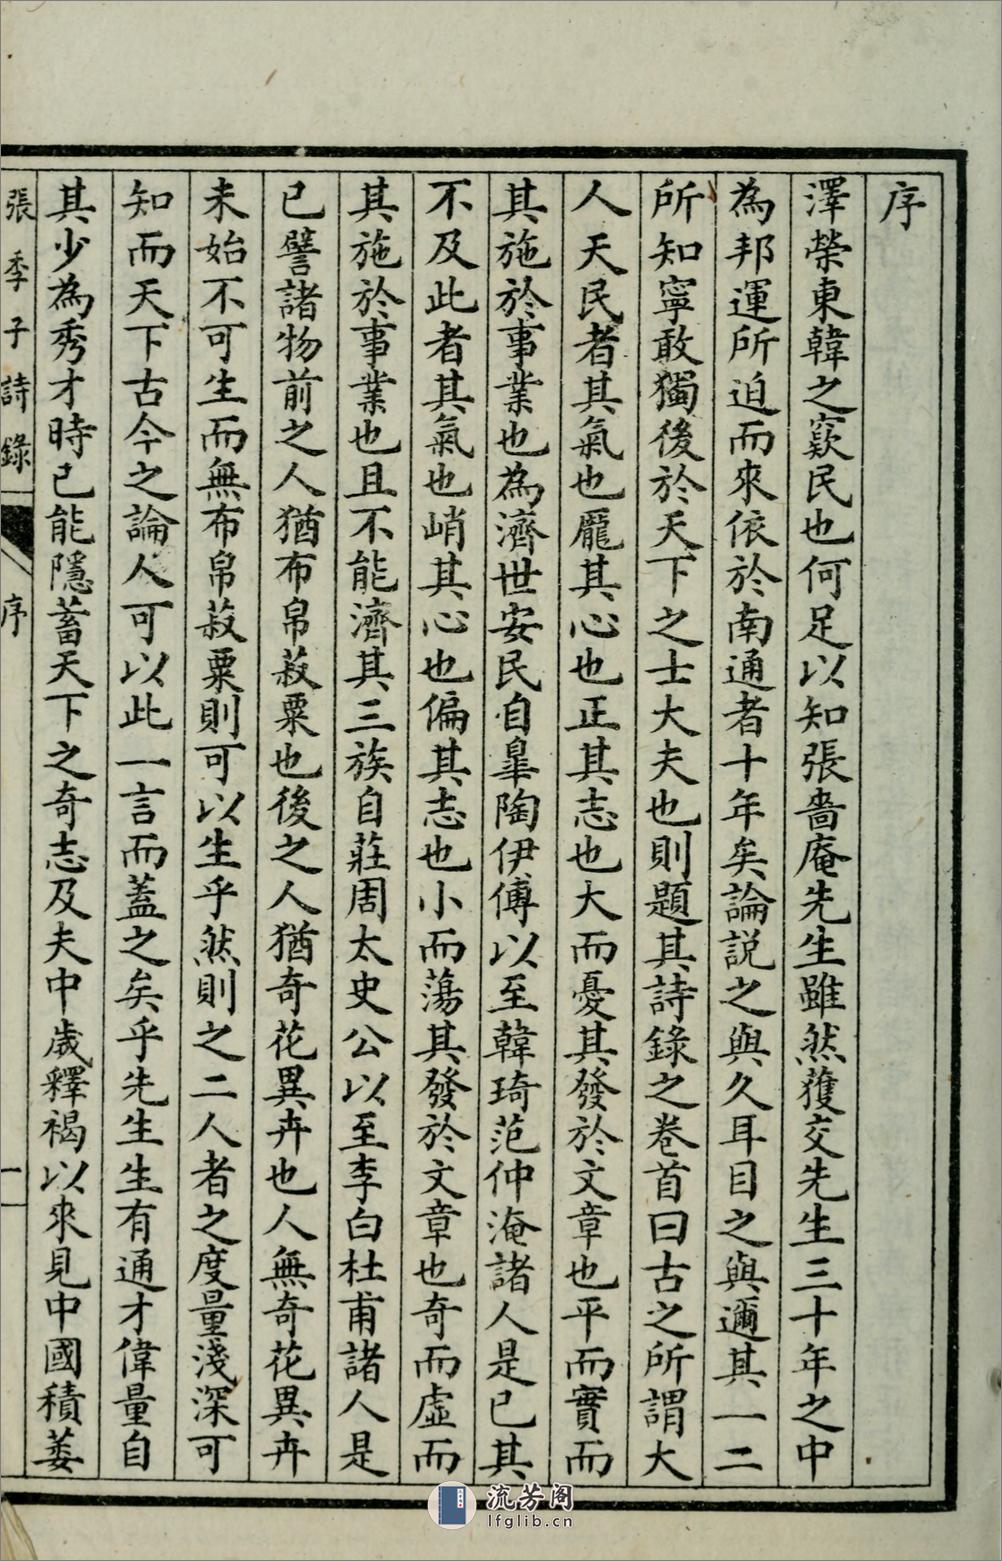 序
澤榮東韓之窾民也何足以知張嗇庵先生雖然獲交先生三十年之中
為邦運所迫而來依於南通者十年矣論説之與久耳目之與邇其一二
所知寧敢獨後於天下之士大夫也則題其詩錄之卷首曰古之所謂大
人天民者其氣也龐其心也正其志也大而憂其發於文章也平而實而
其施於事業也為濟世安民自臯陶伊傅以至韓琦范仲淹諸人是已其
不及此者其氣也峭其心也偏其志也小而蕩其發於文章也奇而虛而
其施於事業也且不能濟其三族自莊周太史公以至李白杜甫諸人是
已譬諸物前之人猶布帛菽粟也後之人猶奇花異卉也人無奇花異卉
未始不可生而無布帛菽粟則可以生乎然則之二人者之度量淺深可
知而天下古今之論人可以此一言而蓋之矣乎先生生有通才偉量自
其少為秀才時已能隱蓄天下之奇志及夫中歲釋褐以來見中國積萎
張季子詩錄 序 一
流芳阁
lfglib.cn